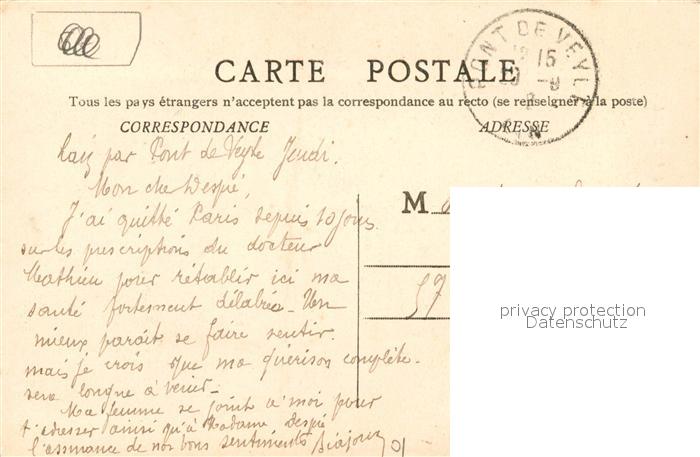 PONT DE VEYLE
15
AIN
CARTE POSTALE
Tous les pays étrangers n'acceptent pas la correspondance au recto (se renseigner à la poste)
CORRESPONDANCE
ADRESSE
Laiz par Pont de Veyle Jeudi.
Mon che Despié,
J'ai quitté Paris depuis 10 jours
sur les prescriptions du docteur
Mathieu pour rétablir ici ma
santé fortement délabrée - Un
mieux parait se faire sentir.
mais je crois que ma guérison complète
sera longue à venir -
Ma femme se joint à moi pour
t'adresser ainsi qu'à Madame Despié
l'assurance de nos bons sentiments
M
57
privacy protection
Datenschutz